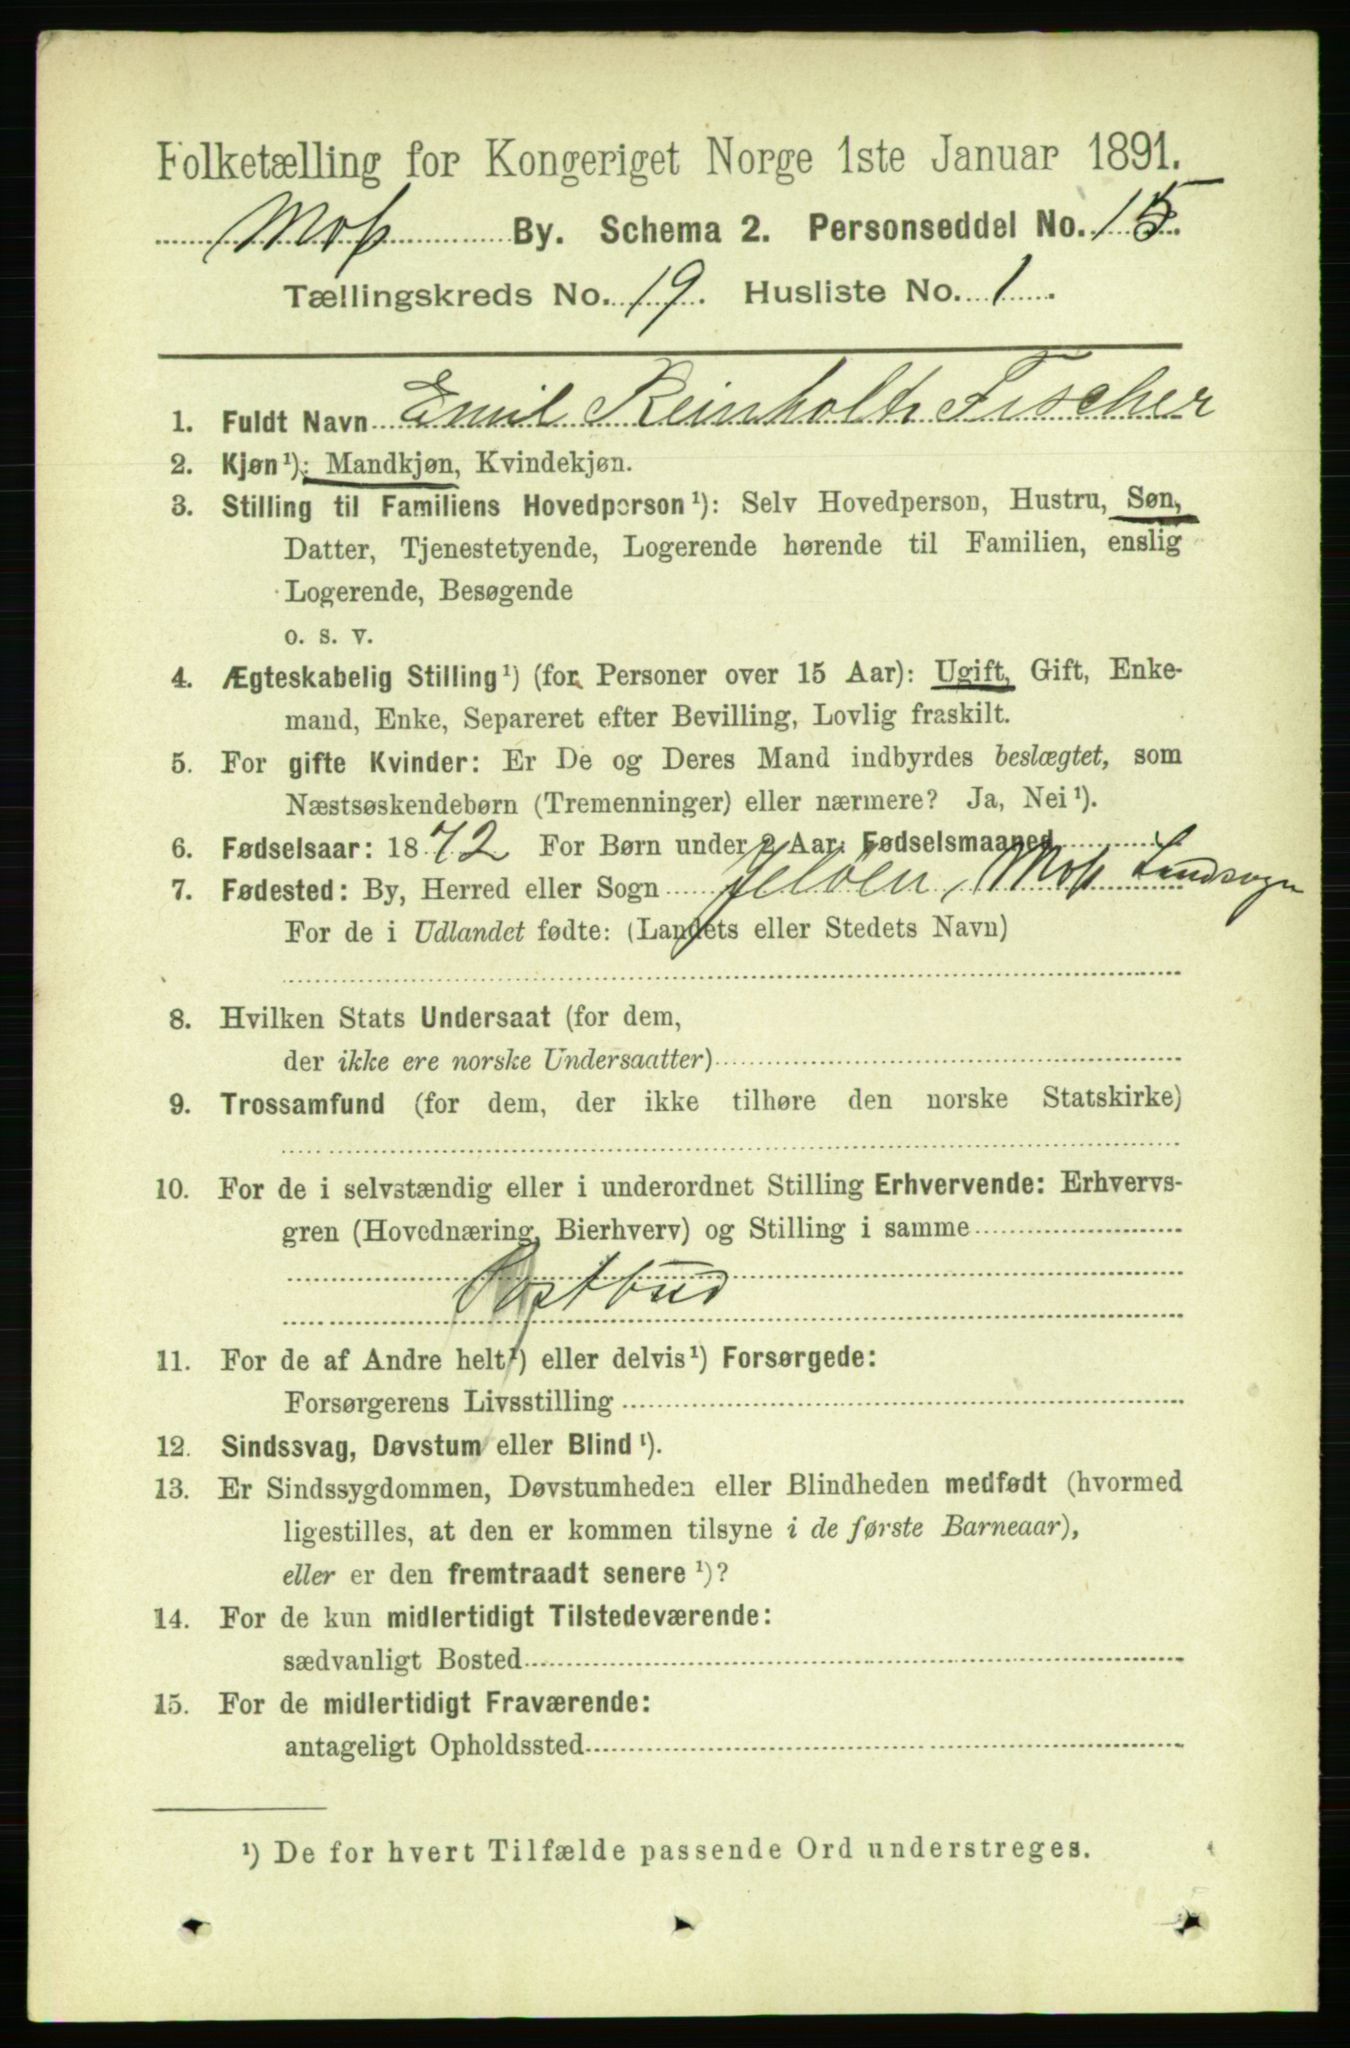 Folketælling for Kongeriget Norge 1ste Januar 1891.
Moss By. Schema 2. Personseddel No. 15.
Tællingskreds No. 19. Husliste No. 1.
1. Fuldt Navn Emil Reinholdt Fischer
2. Kjøn¹): Mandkjøn, Kvindekjøn.
3. Stilling til Familiens Hovedperson¹): Selv Hovedperson, Hustru, Søn,
Datter, Tjenestetyende, Logerende hørende til Familien, enslig
Logerende, Besøgende
o. s. v.
4. Ægteskabelig Stilling¹) (for Personer over 15 Aar): Ugift, Gift, Enke-
mand, Enke, Separeret efter Bevilling, Lovlig fraskilt.
5. For gifte Kvinder: Er De og Deres Mand indbyrdes beslægtet, som
Næstsøskendebørn (Tremenninger) eller nærmere? Ja, Nei¹).
6. Fødselsaar: 1872 For Børn under 2 Aar: Fødselsmaaned
7. Fødested: By, Herred eller Sogn Jeløen, Moss Landsogn
For de i Udlandet fødte: (Landets eller Stedets Navn)
8. Hvilken Stats Undersaat (for dem,
der ikke ere norske Undersaatter)
9. Trossamfund (for dem, der ikke tilhøre den norske Statskirke)
10. For de i selvstændig eller i underordnet Stilling Erhvervende: Erhvervs-
gren (Hovednæring, Bierhverv) og Stilling i samme
Postbud
11. For de af Andre helt¹) eller delvis¹) Forsørgede:
Forsørgerens Livsstilling
12. Sindssvag, Døvstum eller Blind¹).
13. Er Sindssygdommen, Døvstumheden eller Blindheden medfødt (hvormed
ligestilles, at den er kommen tilsyne i de første Barneaar),
eller er den fremtraadt senere¹)?
14. For de kun midlertidigt Tilstedeværende:
sædvanligt Bosted
15. For de midlertidigt Fraværende:
antageligt Opholdssted
¹) De for hvert Tilfælde passende Ord understreges.